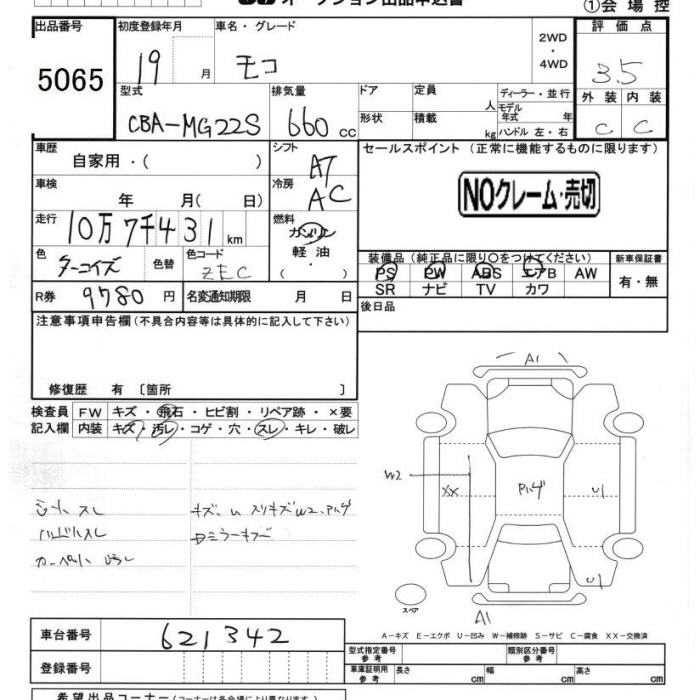 オークション出品申込書 ①会場控
出品番号 初度登録年月 車名・グレード 2WD・4WD 評価点
5065 19 月 モコ 3.5
型式 排気量 ドア 定員 人 ディーラー・並行 外装 内装
CBA-MG22S 660 cc 形状 積載 kg モデル年式 年 ハンドル 左・右 C C
車歴 自家用・( ) シフト AT セールスポイント (正常に機能するものに限ります)
車検 年 月( 日) 冷房 AC NOクレーム・売切
走行 10万7千431 km 燃料 ガソリン 軽油・( )
色 ターコイズ 色替 色コード ZEC
装備品 (純正品に限り○をつけてください) 新車保証書
PS PW ABS エアB AW 有・無
SR ナビ TV カワ
R券 9780円 名変通知期限 月 日 後日品
注意事項申告欄 (不具合内容等は具体的に記入して下さい)
修復歴 有 [箇所 ]
検査員 FW キズ・飛石・ヒビ割・リペア跡・×要
記入欄 内装 キズ・汚レ・コゲ・穴・スレ・キレ・破レ
A1
W2 XX Pハゲ U1
U1
スペア A1
シートスレ キズ、U スリキズW2、Pハゲ
ハンドルスレ
カーペット
A-キズ E-エクボ U-凹み W-補修跡 S-サビ C-腐食 XX-交換済
車台番号 621342 型式指定番号 参考 類別区分番号 参考
登録番号 車庫証明用 参考 長さ cm 幅 cm 高さ cm
希望出品コーナー (コーナーは各会場により異なります)